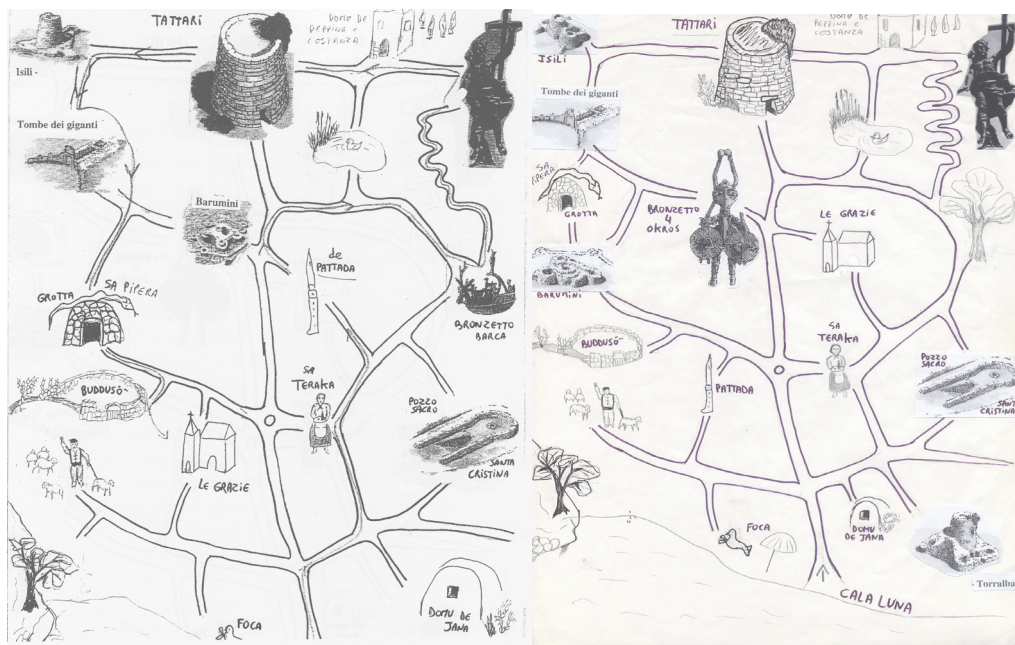 TATTARI
DOMU DE
PEPPINA E
COSTANZA
Isili -
Tombe dei giganti
Barumini
de
PATTADA
GROTTA
SA PIPERA
BRONZETTO
BARCA
BUDDUSÒ
SA
TERAKA
POZZO
SACRO
SANTA
CRISTINA
LE GRAZIE
FOCA
DOMU DE
JANA
TATTARI
DOMU DE
PEPPINA E
COSTANZA
ISILI
Tombe dei giganti
SA
PIPERA
GROTTA
BRONZETTO
4
OKROS
LE GRAZIE
BARUMINI
BUDDUSÒ
SA
TERAKA
PATTADA
POZZO
SACRO
SANTA
CRISTINA
FOCA
DOMU
DE JANA
- Torralba
CALA LUNA